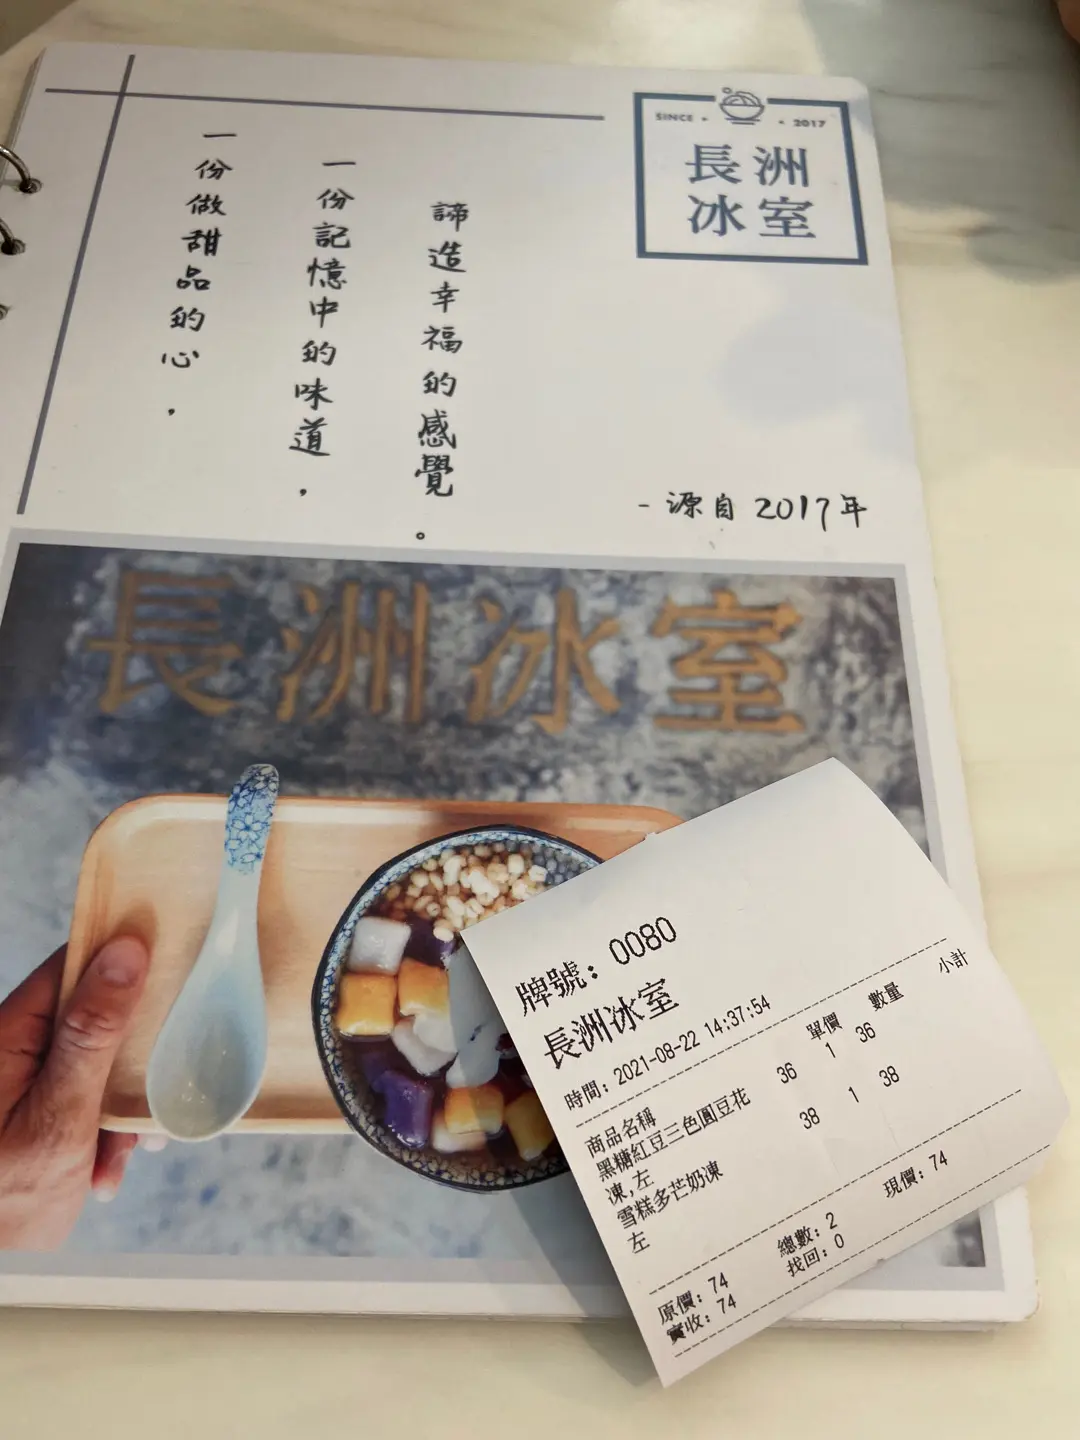 SINCE • • 2017
長洲
冰室
一份做甜品的心，
一份記憶中的味道，
諦造幸福的感覺。
- 源自 2017年
長洲冰室
牌號: 0080
長洲冰室
時間: 2021-08-22 14:37:54
商品名稱 單價 數量 小計
黑糖紅豆三色圓豆花 36 1 36
凍,左
雪糕多芒奶凍 38 1 38
左
總數: 2 現價: 74
原價: 74 找回: 0
實收: 74